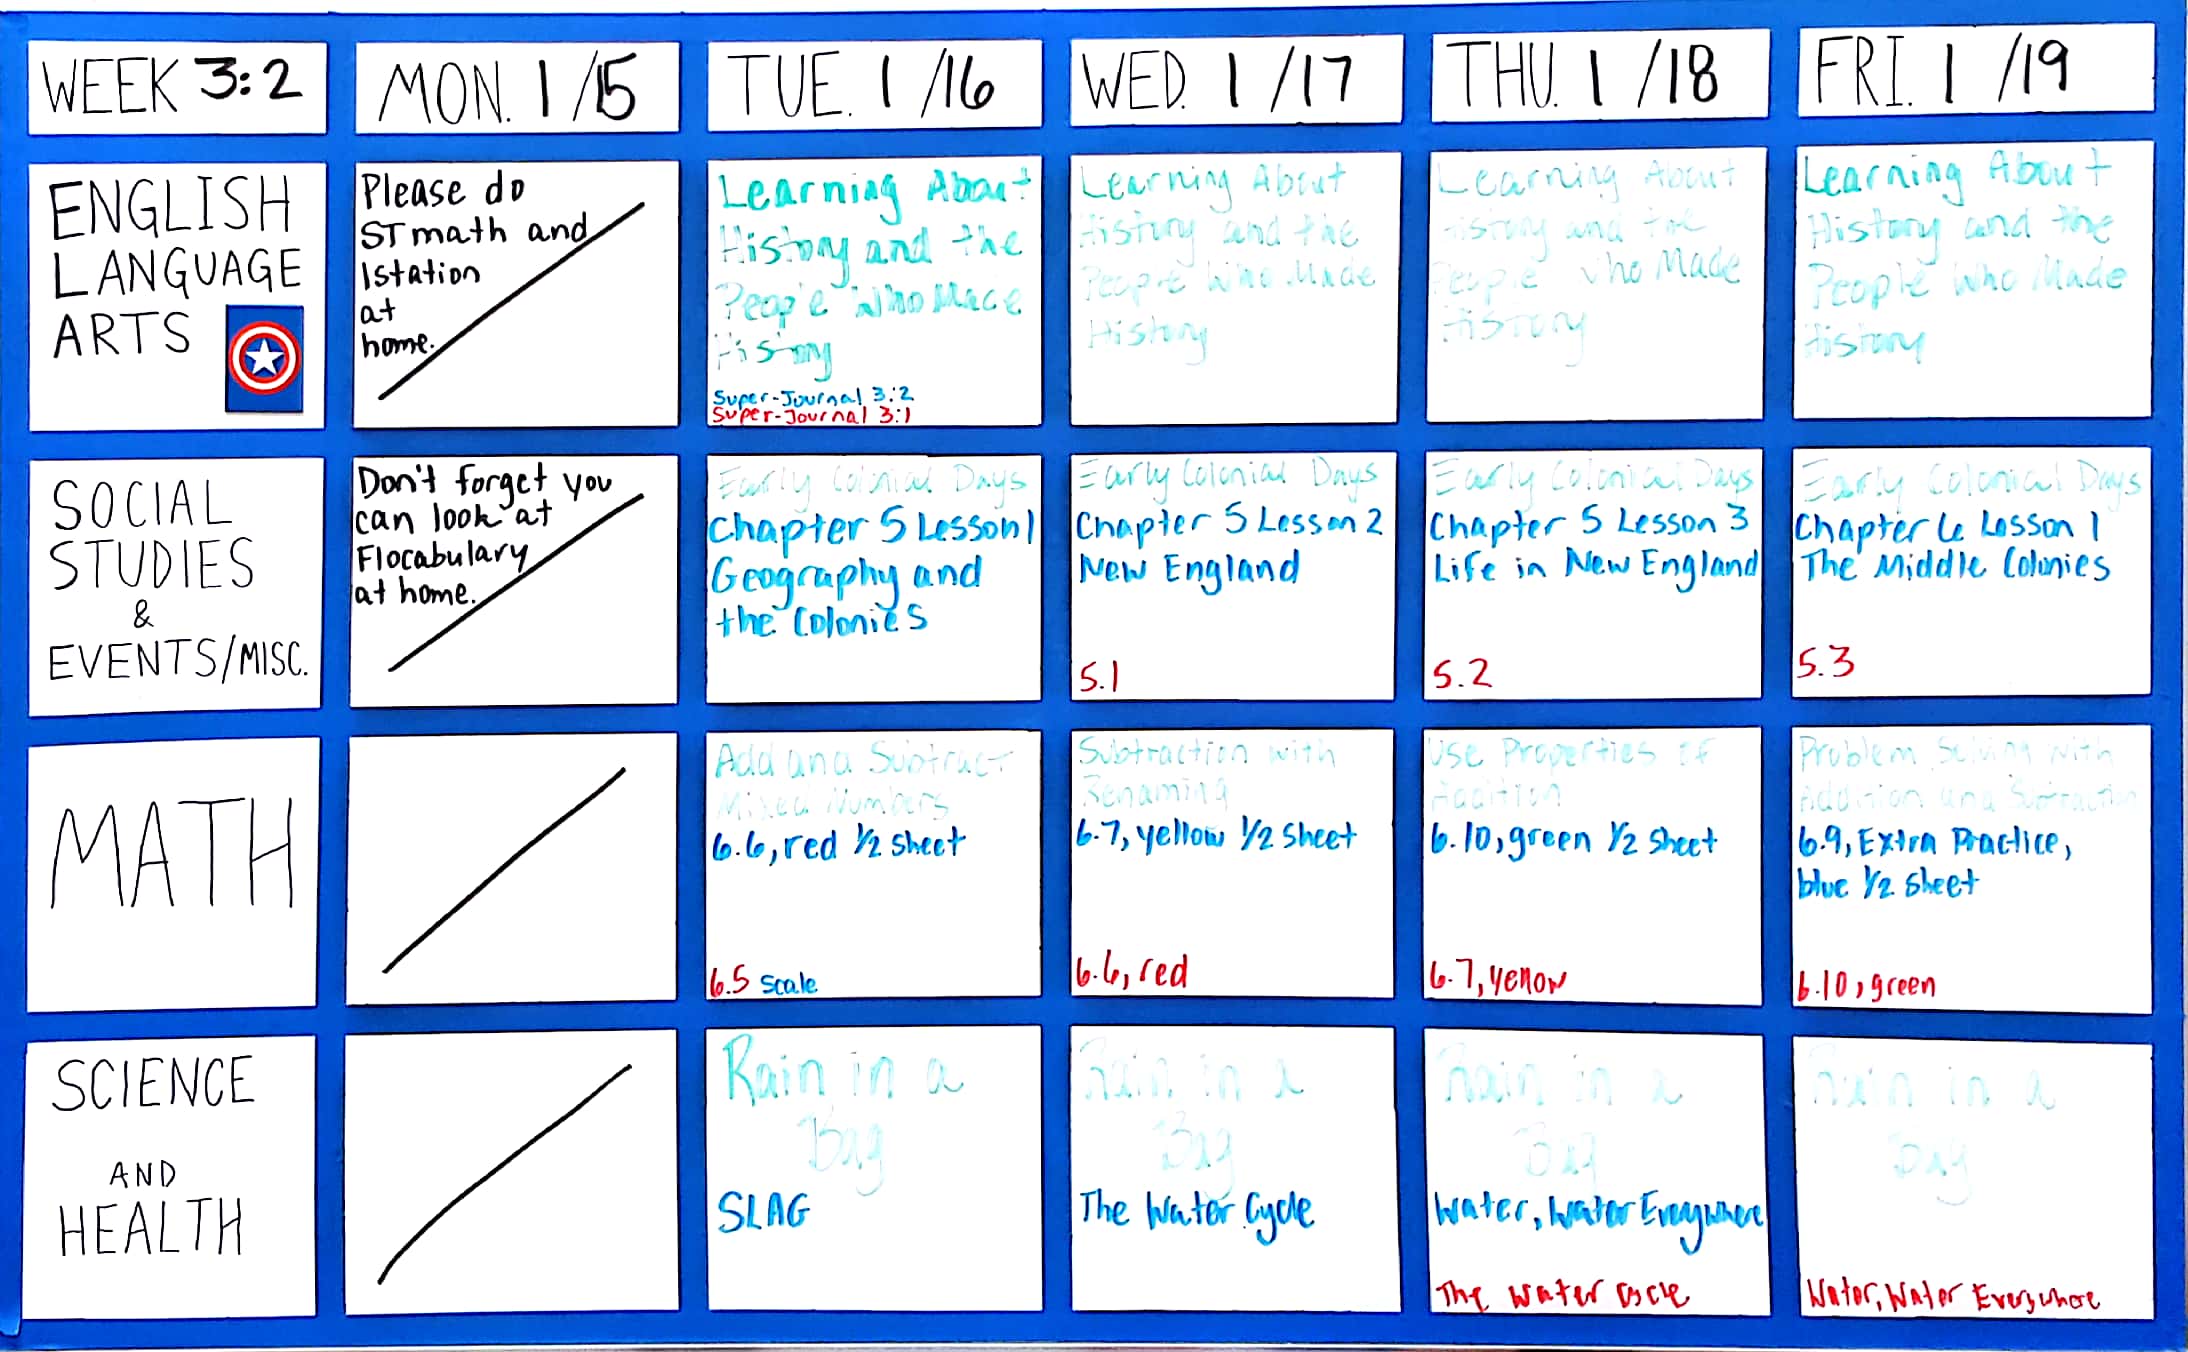 WEEK 3:2
MON. 1/15
TUE. 1/16
WED. 1/17
THU. 1/18
FRI. 1/19
ENGLISH
LANGUAGE
ARTS
Please do
ST math and
Istation
at
home.
Learning About
History and the
People Who Made
History
Super-Journal 3:2
Super-Journal 3:1
Learning About
History and the
People Who Made
History
Learning About
History and the
People Who Made
History
Learning About
History and the
People Who Made
History
SOCIAL
STUDIES
&
EVENTS/MISC.
Don't forget you
can look at
Flocabulary
at home.
Early Colonial Days
Chapter 5 Lesson 1
Geography and
the Colonies
Early Colonial Days
Chapter 5 Lesson 2
New England
5.1
Early Colonial Days
Chapter 5 Lesson 3
Life in New England
5.2
Early Colonial Days
Chapter 6 Lesson 1
The Middle Colonies
5.3
MATH
Add and Subtract
Mixed Numbers
6.6, red 1/2 sheet
6.5 scale
Subtraction with
Renaming
6.7, yellow 1/2 sheet
6.6, red
Use Properties of
Addition
6.10, green 1/2 sheet
6.7, yellow
Problem Solving with
Addition and Subtraction
6.9, Extra Practice,
blue 1/2 sheet
6.10, green
SCIENCE
AND
HEALTH
Rain in a
Bag
SLAG
Rain in a
Bag
The Water Cycle
Rain in a
Bag
Water, Water Everywhere
The Water Cycle
Rain in a
Bag
Water, Water Everywhere